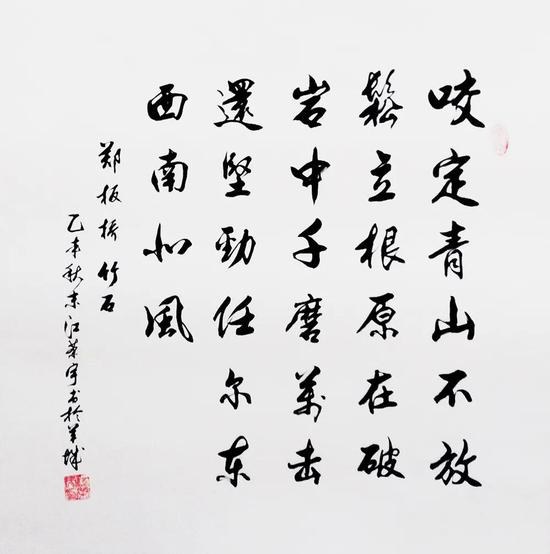 咬定青山不放
鬆立根原在破
岩中千磨萬击
還堅勁任尔东
西南北風
郑板桥 竹石
乙未秋东江宇书於羊城